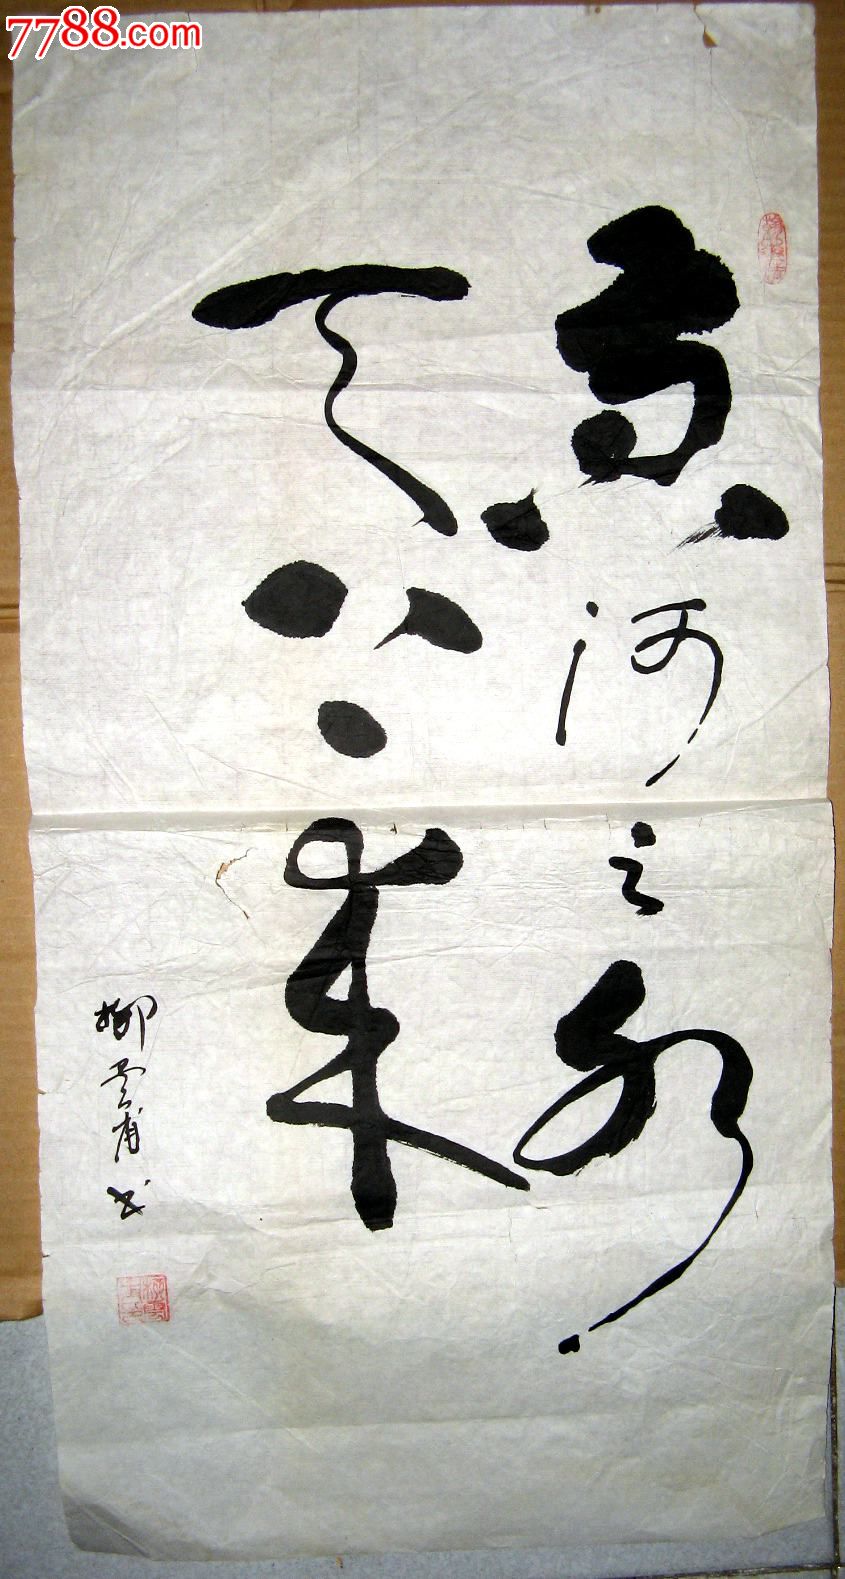 7788.com
黄河之水
天上来
柳云书